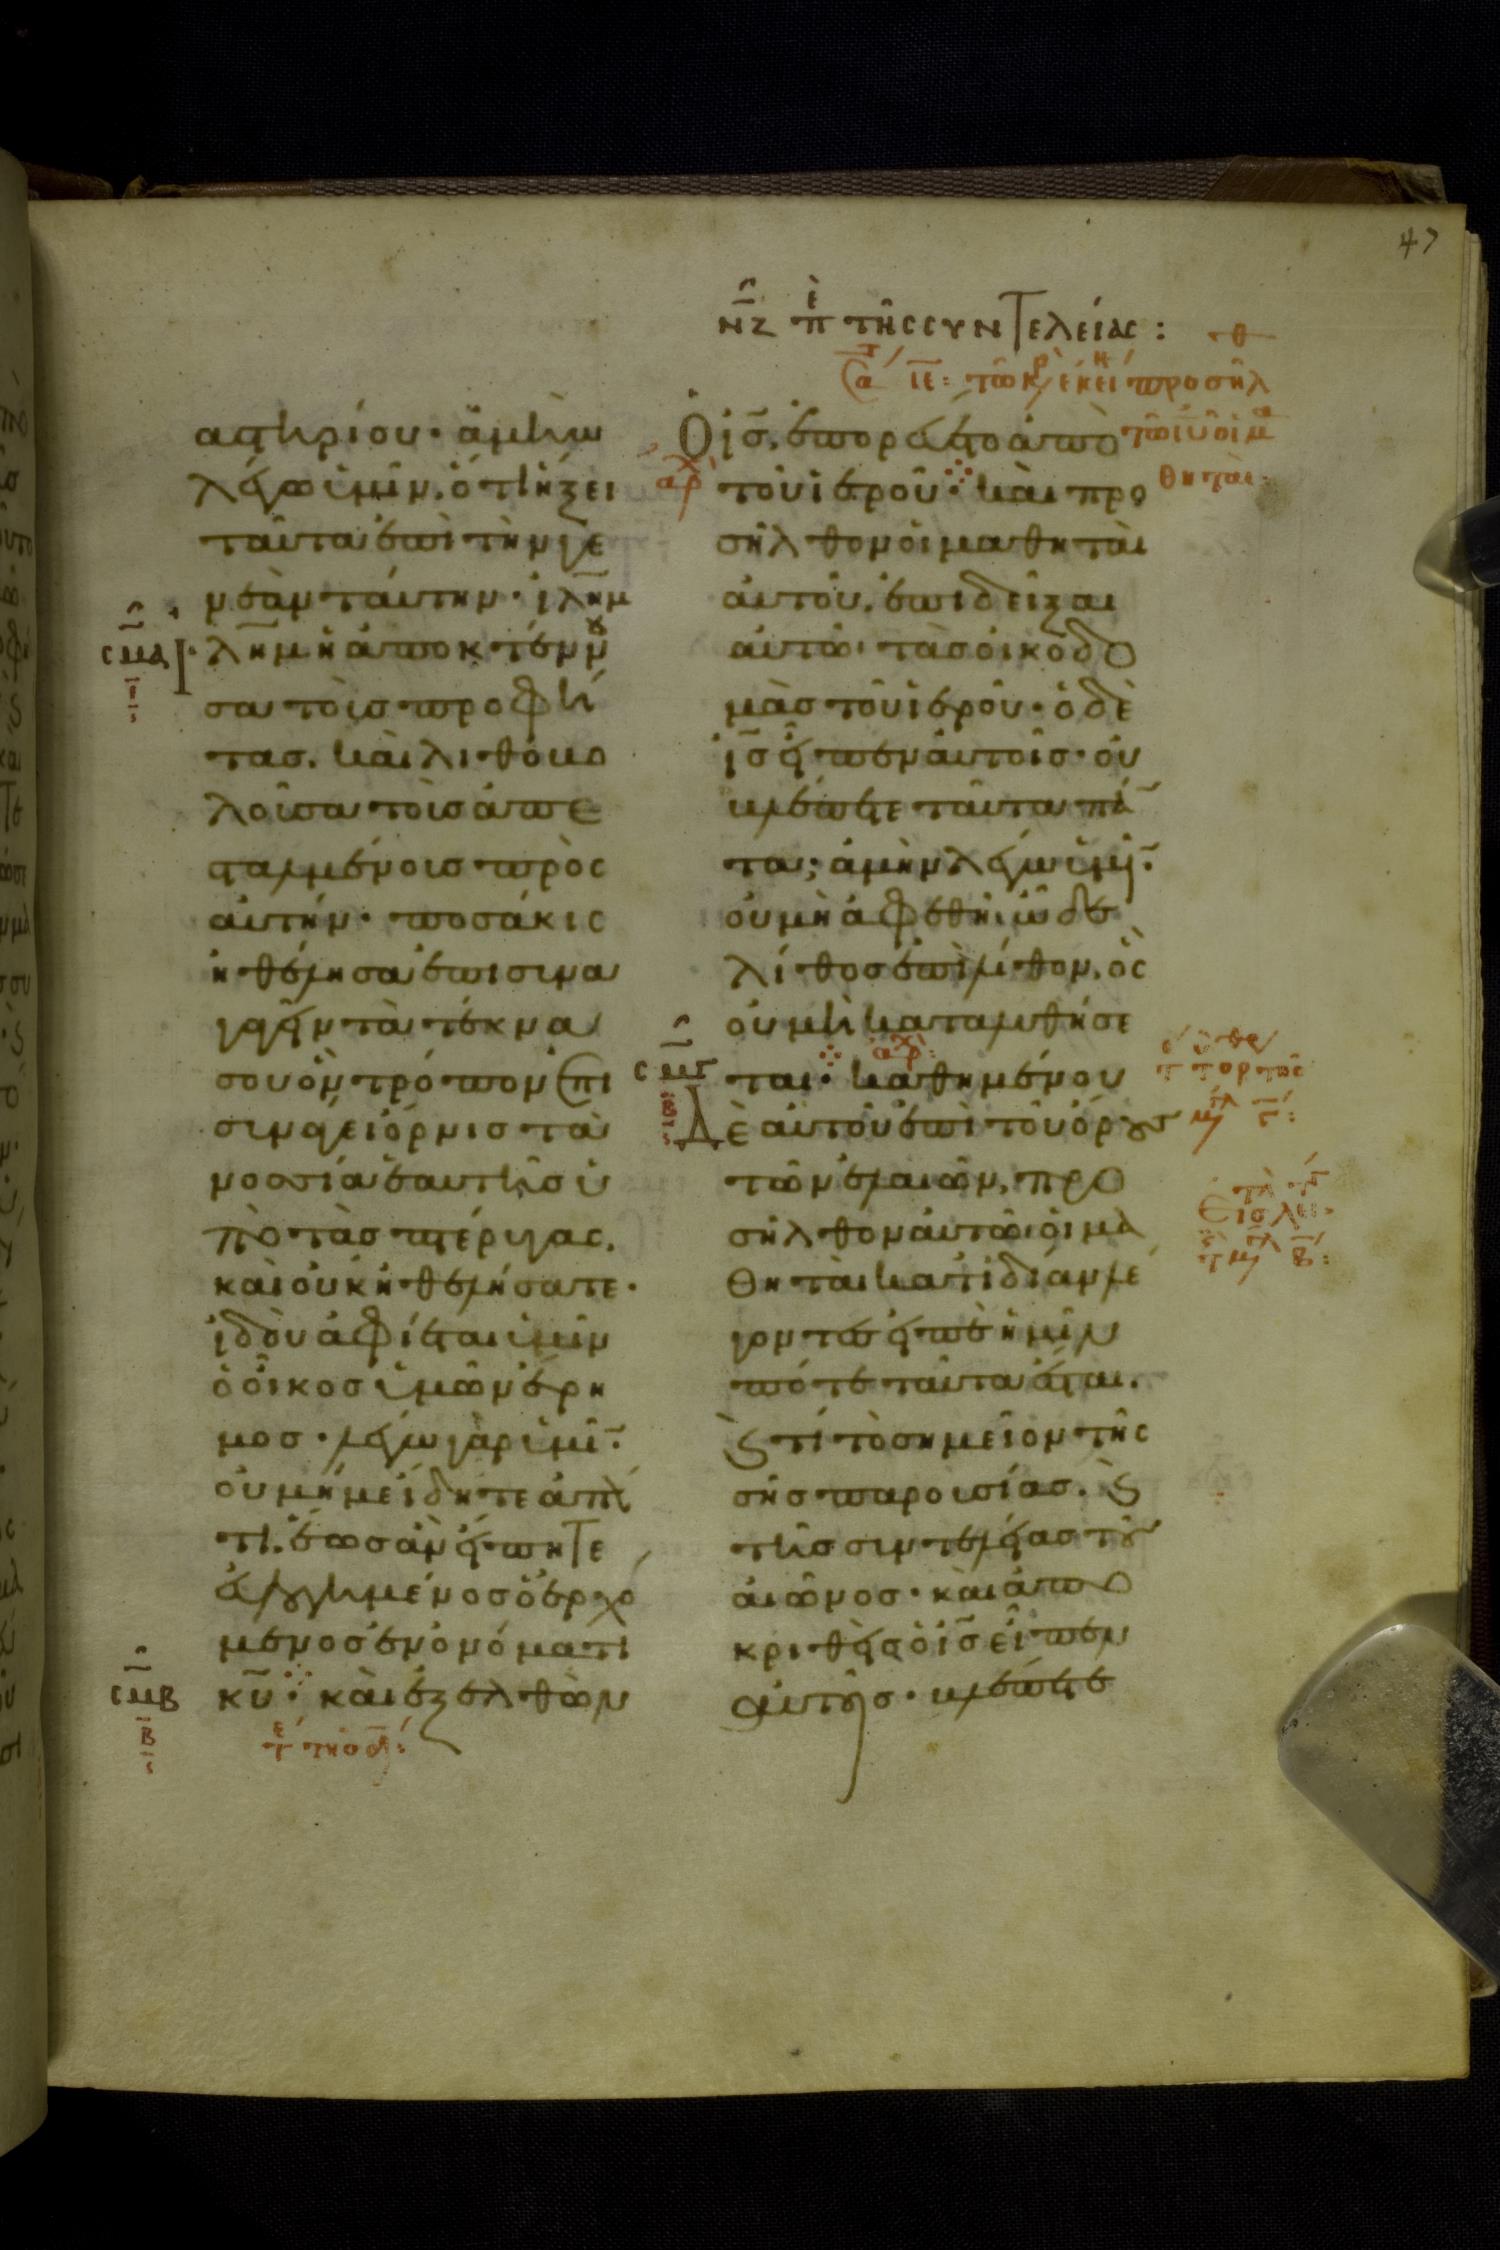 47
νζ π τῆς συντελείας:
αστηρίου· ἀμὴν
λέγω ὑμῖν, ὅτι ἥξει
ταῦτα ἐπὶ τὴν γε
νεὰν ταύτην· ἰλημ
ϲμα
ιλημ ἡ ἀποκτέννου
σα τοὺς προφή
τας. καὶ λιθοβο
λοῦσα τοὺς ἀπε
σταλμένους πρὸς
αὐτήν· ποσάκις
ἠθέλησα ἐπισυνα
γαγεῖν τὰ τέκνα
σου ὃν τρόπον ἐπι
συνάγει ὄρνις τὰ
νοσσία ἑαυτῆς ὑ
πὸ τὰς πτέρυγας,
καὶ οὐκ ἠθελήσατε·
ἰδοὺ ἀφίεται ὑμῖν
ὁ οἶκος ὑμῶν ἔρη
μος· λέγω γὰρ ὑμῖ·
οὐ μή με ἴδητε ἀπάρ
τι. ἕως ἂν εἴπητε
εὐλογημένος ὁ ἐρχό
μενος ἐν ὀνόματι
ϲμβ
β
κυ· καὶ ἐξελθὼν
Ὁ ις, ἐπορεύετο ἀπὸ
τοῦ ἱεροῦ· καὶ προ
σῆλθον οἱ μαθηταὶ
αὐτοῦ, ἐπιδεῖξαι
αὐτῷ τὰς οἰκοδο
μὰς τοῦ ἱεροῦ· ὁ δὲ
ις εἶπεν αὐτοῖς· οὐ
βλέπετε ταῦτα πάν
τα; ἀμὴν λέγω ὑμῖ·
οὐ μὴ ἀφεθῇ ὧδε
λίθος ἐπὶ λίθον, ὃς
οὐ μὴ καταλυθήσε
ϲμγ
β
ται· καθημένου
δὲ αὐτοῦ ἐπὶ τοῦ ὄρους
τῶν ἐλαιῶν, προ
σῆλθον αὐτῷ οἱ μα
θηταὶ κατιδίαν λέ
γοντες εἰπὲ ἡμῖν
πότε ταῦτα ἔσται.
ϗ τί τὸ σημεῖον τῆς
σῆς παρουσίας. ϗ
τῆς συντελείας τοῦ
αἰῶνος· καὶ ἀπο
κριθεὶς ὁ ις εἶπεν
αὐτοῖς· βλέπετε